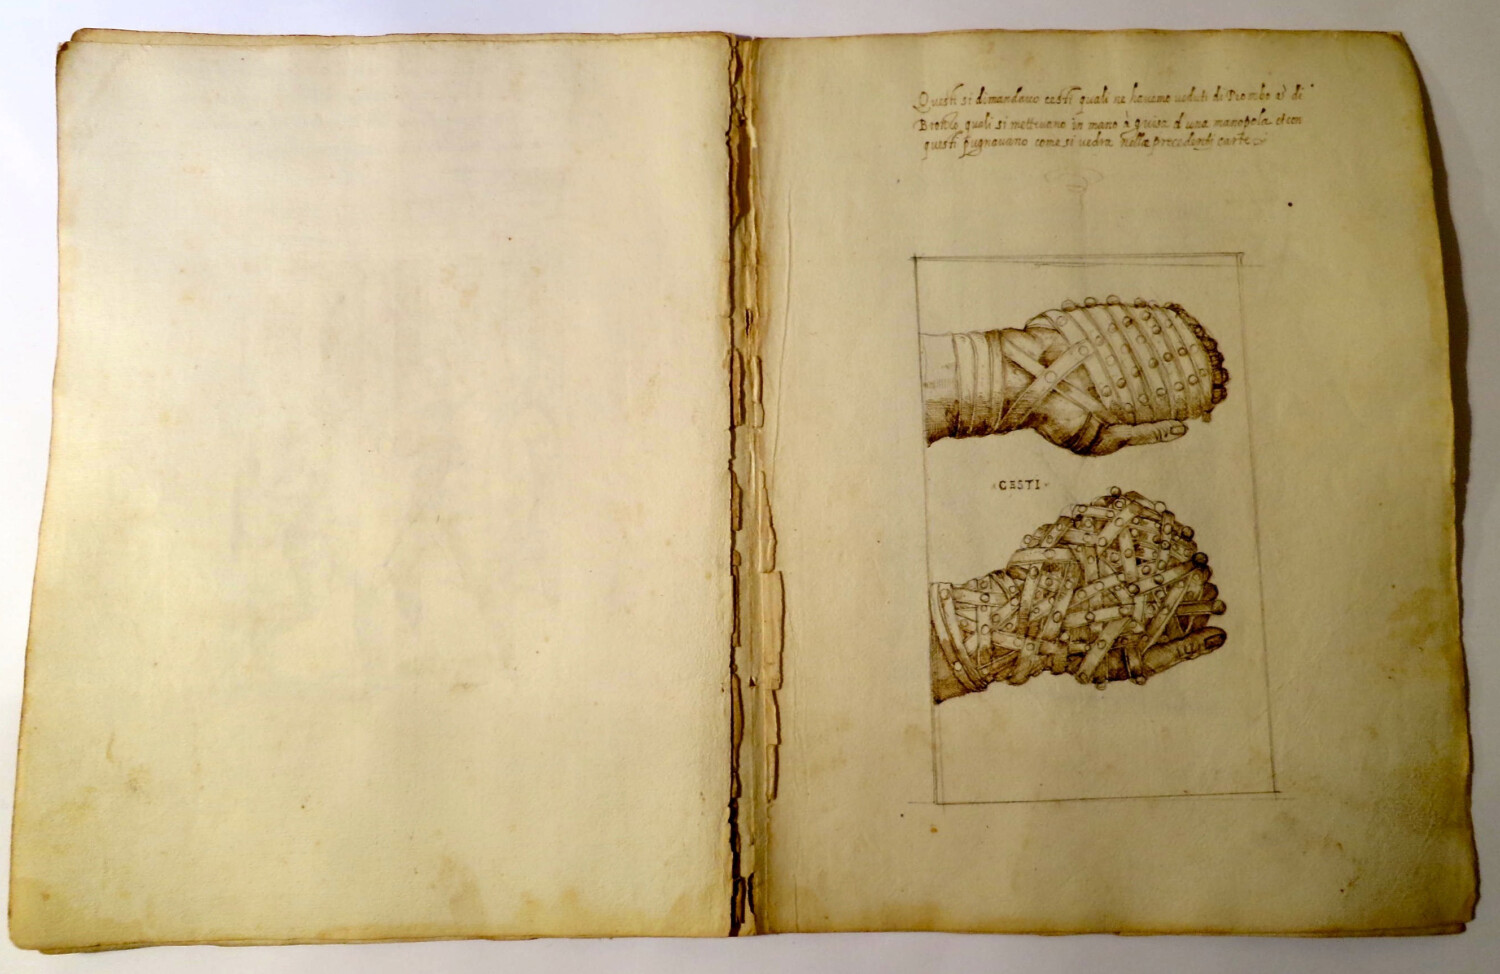 Questi si dimandano cesti quali ne havemo veduti di Piombo et di
quali si mettevano in mano à guisa d una manopola et con
questi pugnavano come si vedra nelle precedenti carte
CESTI